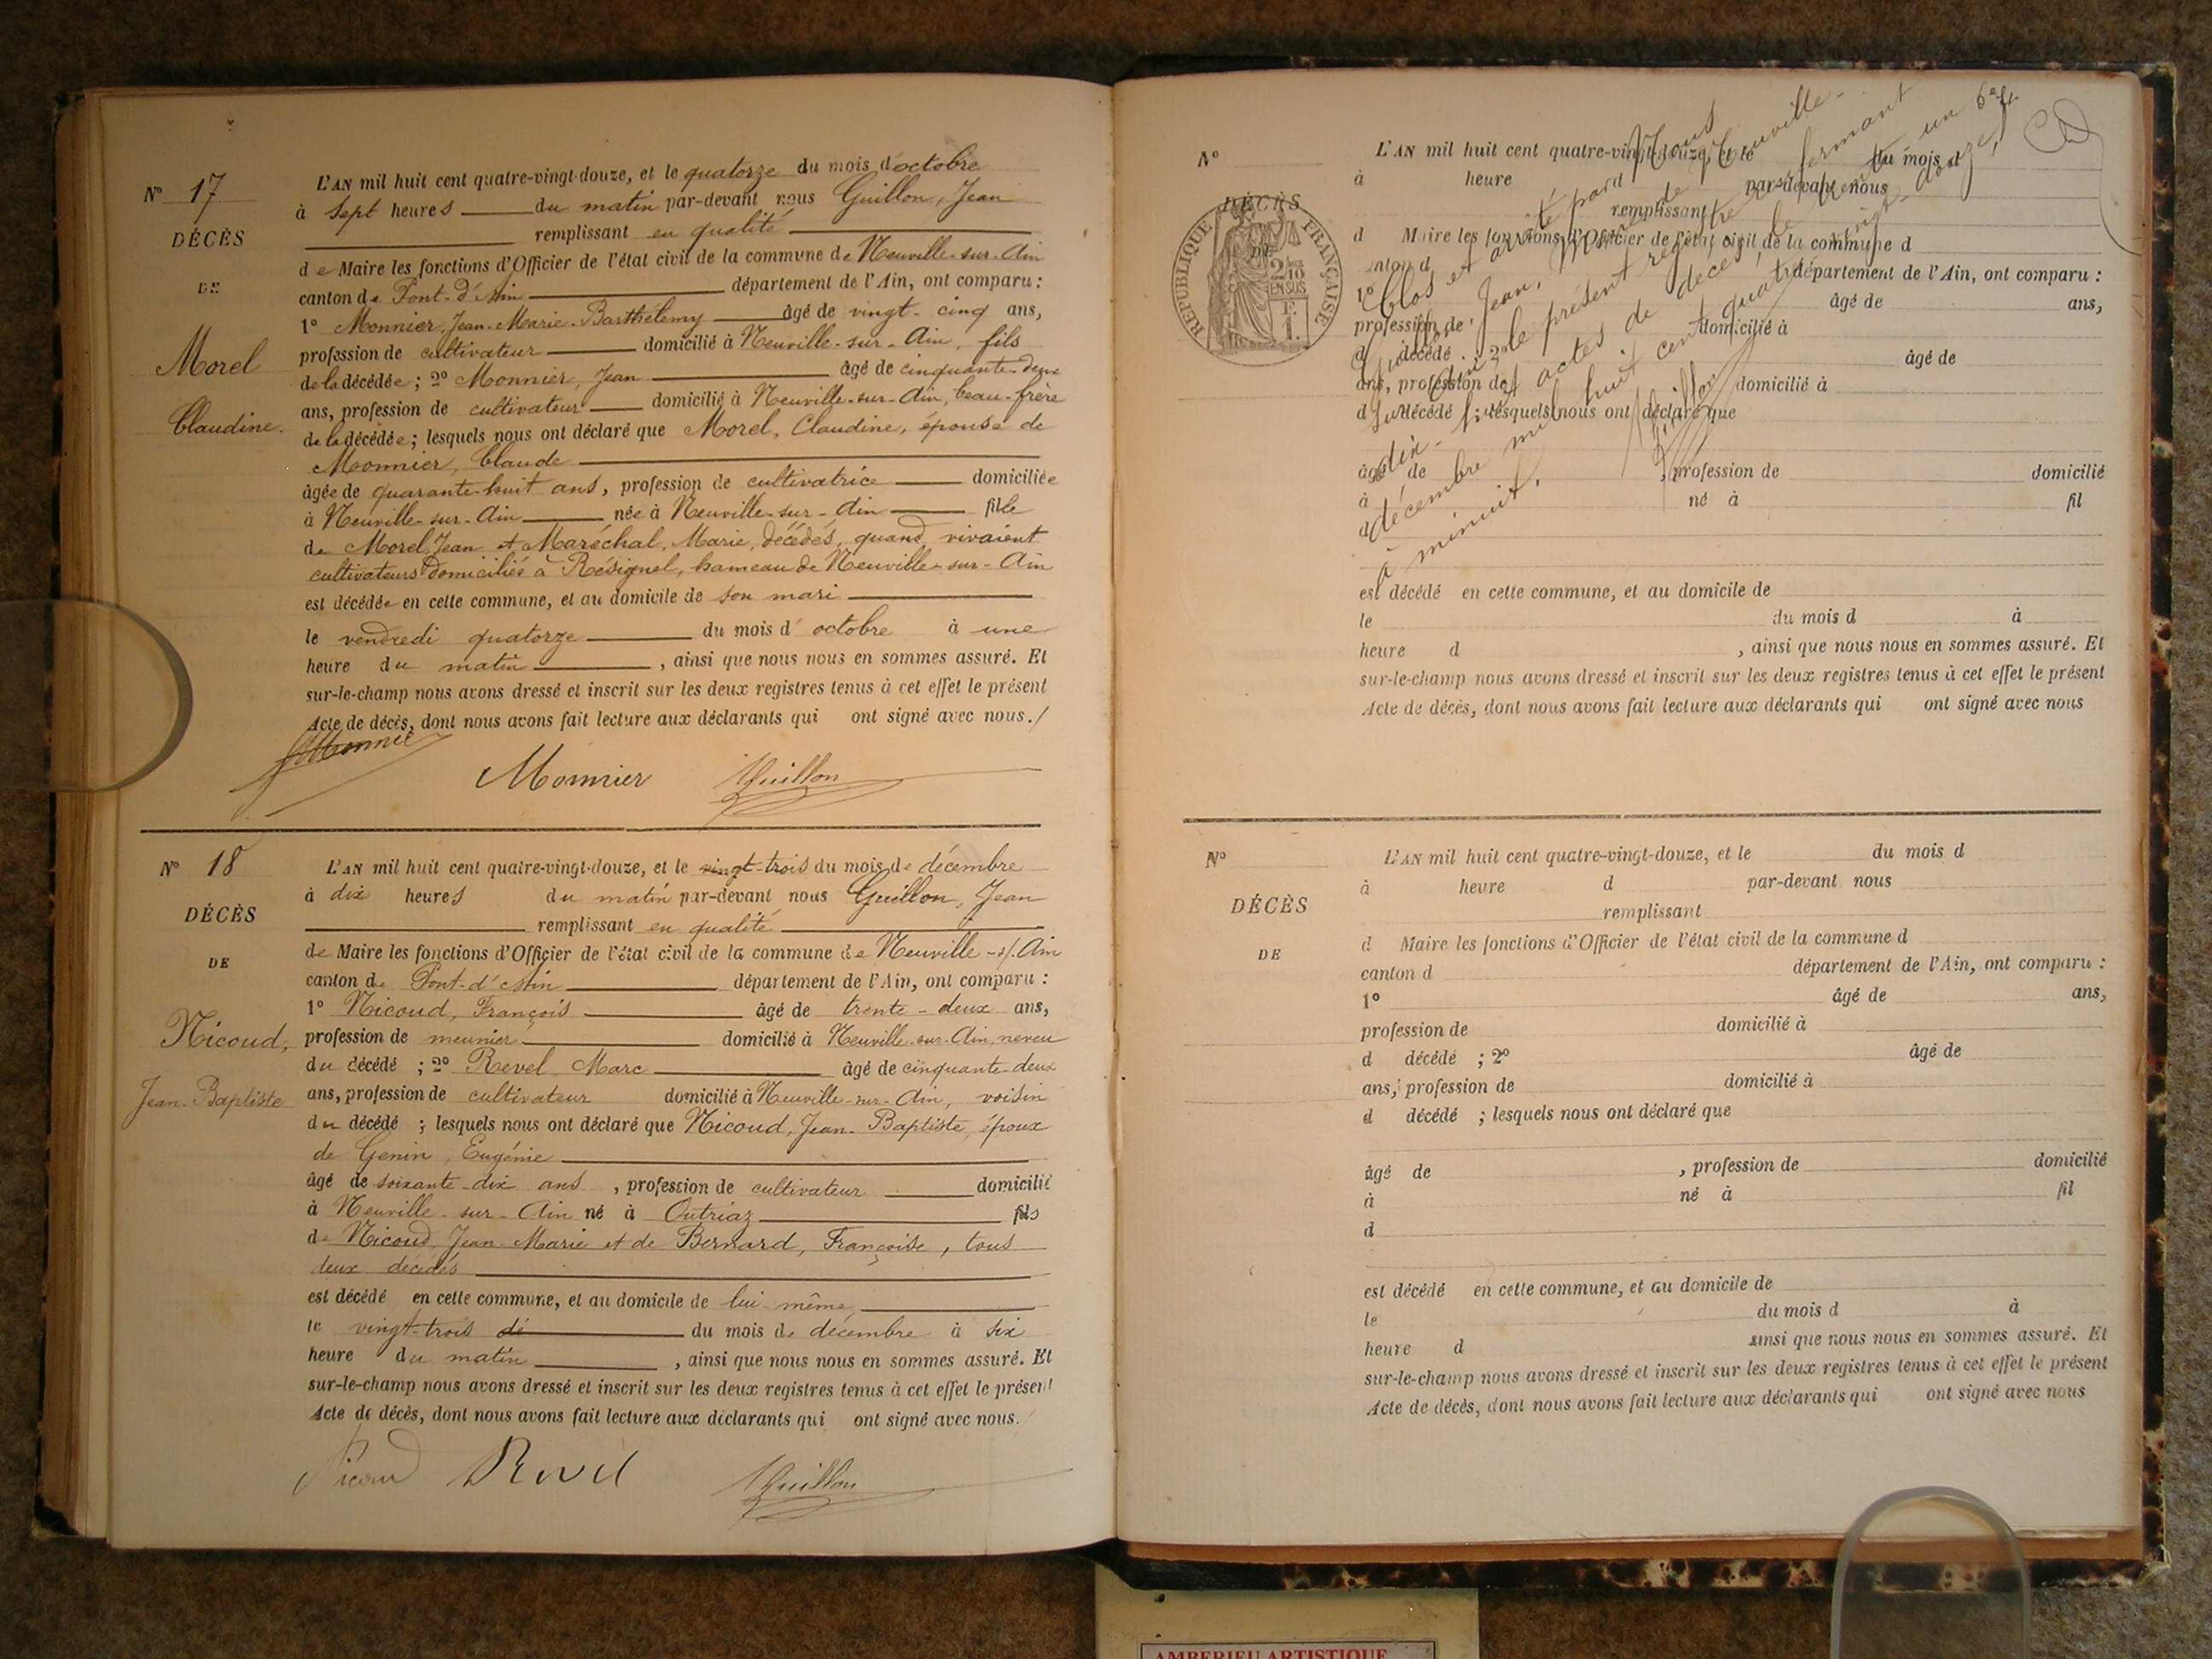 N° 17
DÉCÈS
DE
Morel
Claudine.
L'AN mil huit cent quatre-vingt-douze, et le quatorze du mois d'octobre
à sept heures du matin par-devant nous Guillon, Jean
remplissant en qualité
de Maire les fonctions d'Officier de l'état civil de la commune de Neuville-sur-Ain
canton de Pont-d'Ain département de l'Ain, ont comparu :
1° Monnier, Jean-Marie-Barthélemy âgé de vingt-cinq ans,
profession de cultivateur domicilié à Neuville-sur-Ain, fils
de la décédée ; 2° Monnier, Jean âgé de cinquante-deux
ans, profession de cultivateur domicilié à Neuville-sur-Ain, beau-frère
de la décédée ; lesquels nous ont déclaré que Morel, Claudine, épouse de
Monnier, Claude
âgée de quarante-huit ans, profession de cultivatrice domiciliée
à Neuville-sur-Ain née à Neuville-sur-Ain fille
de Morel, Jean et Maréchal, Marie, décédés, quand vivaient
cultivateurs domiciliés à Résignel, hameau de Neuville-sur-Ain
est décédée en cette commune, et au domicile de son mari
le vendredi quatorze du mois d'octobre à une
heure du matin, ainsi que nous nous en sommes assuré. Et
sur-le-champ nous avons dressé et inscrit sur les deux registres tenus à cet effet le présent
Acte de décès, dont nous avons fait lecture aux déclarants qui ont signé avec nous./
Monnier Monnier Guillon
N° 18
DÉCÈS
DE
Nicoud,
Jean-Baptiste
L'AN mil huit cent quatre-vingt-douze, et le vingt-trois du mois de décembre
à dix heures du matin par-devant nous Guillon, Jean
remplissant en qualité
de Maire les fonctions d'Officier de l'état civil de la commune de Neuville-s/-Ain
canton de Pont-d'Ain département de l'Ain, ont comparu :
1° Nicoud, François âgé de trente-deux ans,
profession de meunier domicilié à Neuville-sur-Ain, neveu
du décédé ; 2° Revel Marc âgé de cinquante-deux
ans, profession de cultivateur domicilié à Neuville-sur-Ain, voisin
du décédé ; lesquels nous ont déclaré que Nicoud, Jean-Baptiste, époux
de Genin, Eugénie
âgé de soixante-dix ans, profession de cultivateur domicilié
à Neuville-sur-Ain né à Outriaz fils
de Nicoud, Jean-Marie et de Bernard, Françoise, tous
deux décédés
est décédé en cette commune, et au domicile de lui-même,
le vingt-trois dé du mois de décembre à six
heure du matin, ainsi que nous nous en sommes assuré. Et
sur-le-champ nous avons dressé et inscrit sur les deux registres tenus à cet effet le présent
Acte de décès, dont nous avons fait lecture aux déclarants qui ont signé avec nous./
Nicoud Revel Guillon
N°
DÉCÈS
DE
RÉPUBLIQUE FRANÇAISE
2/10 EN SUS
L'AN mil huit cent quatre-vingt-douze, et le du mois d
à heure par-devant nous
remplissant
d Maire les fonctions d'Officier de l'état civil de la commune d
canton d département de l'Ain, ont comparu :
1° âgé de ans,
profession de domicilié à
d décédé ; 2° âgé de
ans, profession de domicilié à
d décédé ; lesquels nous ont déclaré que
âgé de , profession de domicilié
à né à fil
d
est décédé en cette commune, et au domicile de
le du mois d à
heure d , ainsi que nous nous en sommes assuré. Et
sur-le-champ nous avons dressé et inscrit sur les deux registres tenus à cet effet le présent
Acte de décès, dont nous avons fait lecture aux déclarants qui ont signé avec nous
Clos et arrêté par Nous
Guillon Jean, Maire de Neuville-
sur-Ain, le présent registre renfermant
dix-huit actes de décès, le trente un
décembre mil huit cent quatre-vingt-douze,
à minuit.
Guillon
N°
DÉCÈS
DE
L'AN mil huit cent quatre-vingt-douze, et le du mois d
à heure d par-devant nous
remplissant
d Maire les fonctions d'Officier de l'état civil de la commune d
canton d département de l'Ain, ont comparu :
1° âgé de ans,
profession de domicilié à
d décédé ; 2° âgé de
ans, profession de domicilié à
d décédé ; lesquels nous ont déclaré que
âgé de , profession de domicilié
à né à fil
d
est décédé en cette commune, et au domicile de
le du mois d à
heure d ainsi que nous nous en sommes assuré. Et
sur-le-champ nous avons dressé et inscrit sur les deux registres tenus à cet effet le présent
Acte de décès, dont nous avons fait lecture aux déclarants qui ont signé avec nous
AMBERIEU ARTISTIQUE